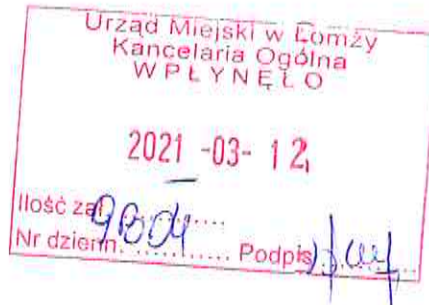 Urząd Miejski w Łomży
Kancelaria Ogólna
WPŁYNĘŁO
2021 -03- 12
Ilość zał.........
Nr dzienn. ............ Podpis ............